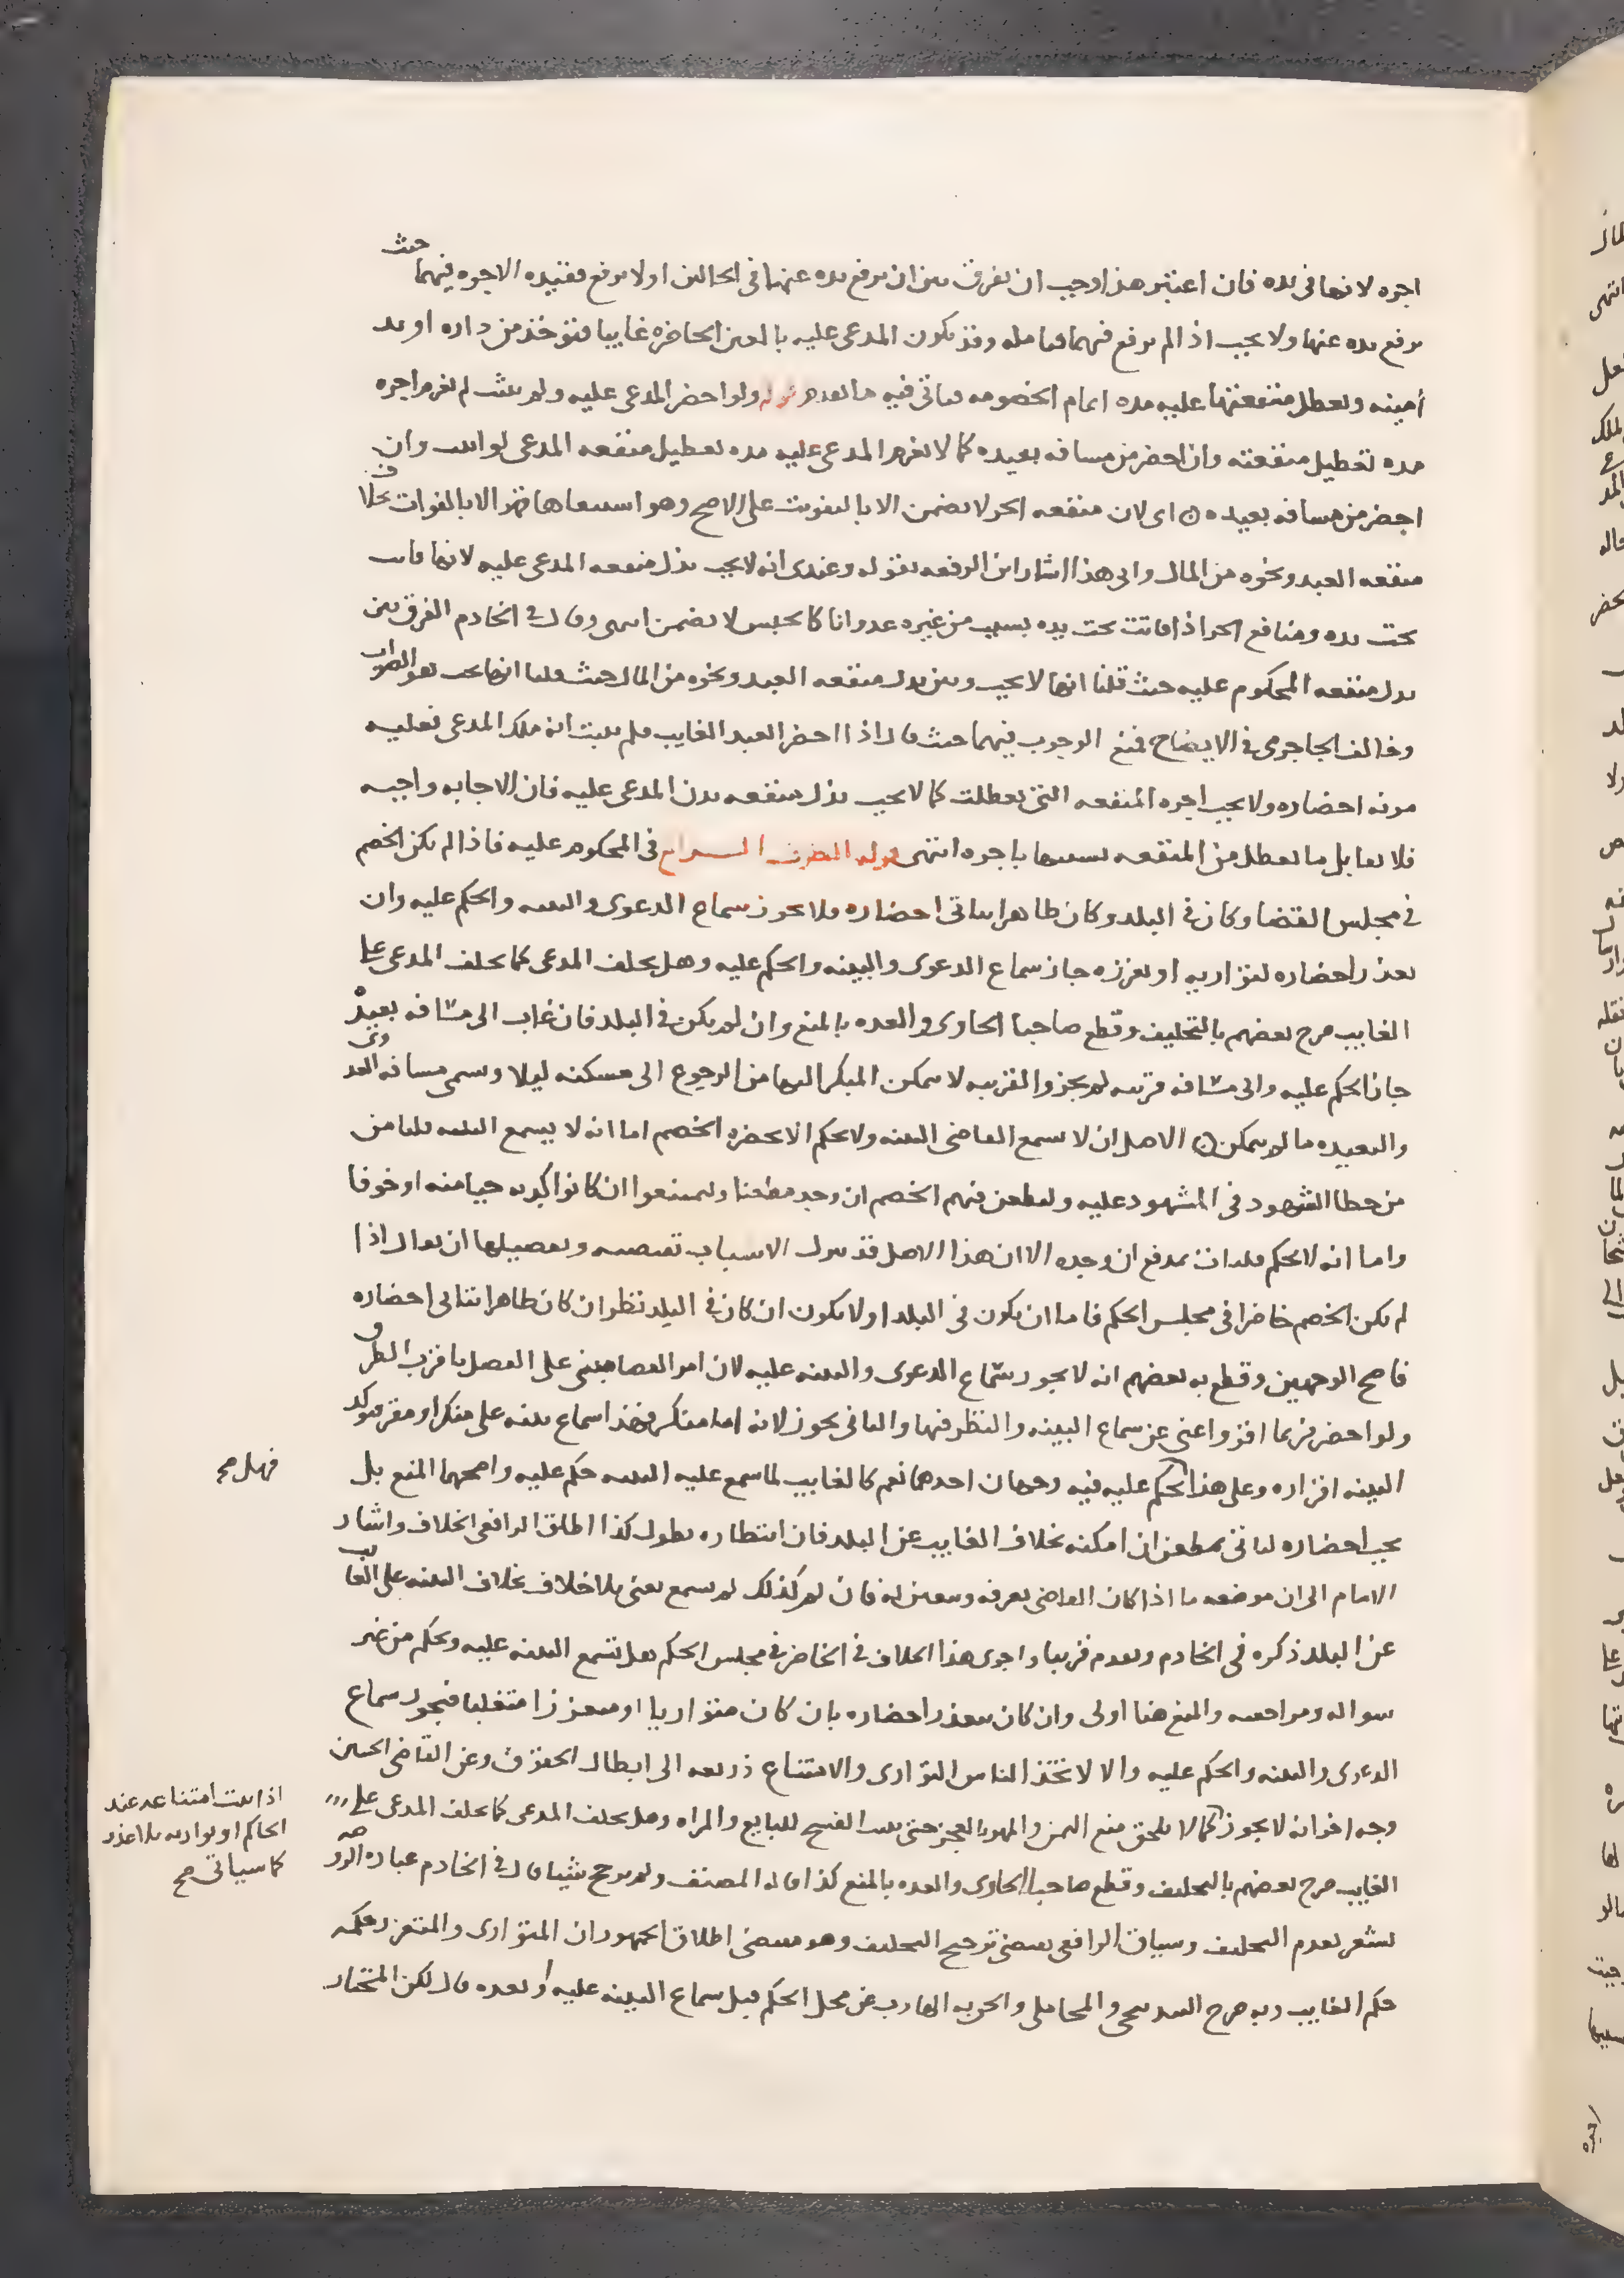 اجره لانها في يده فان اعتبر هذا وجب ان يفرق بين ان يرفع يده عنها في الحالين او لا يرفع فيقيده الاجره فيهما حيث
يرفع يده عنها ولا يجب اذا لم يرفع فيهما فتامله وقد يكون المدعى عليه بالعين الحاضره غايبا فتوخذ من داره او يد
أمينه وتعطل منفعتها عليه مده اتمام الخصومه فياتي فيه ما بعده قوله ولو احضر المدعى عليه ولم يثبت لم يغرم اجره
مده تعطيل منفعته وان احضر من مسافه بعيده كما لا يغرم المدعى عليه مده تعطيل منفعه المدعى لو اثبت وان
احضر من مسافه بعيده ای لان منفعه الحر لا تضمن الا بالتفويت على الاصح وهو استيفاها قهرا لا بالفوات بخلاف
منفعه العبد ونحوه من المال والى هذا اشار ابن الرفعه بقوله وعندى انه لا يجب بذل منفعه المدعى عليه لانها فاتت
تحت يده ومنافع الحر اذا فاتت تحت يده بسبب من غيره عدوانا كالحبس لا تضمن انتهى وقال في الخادم الفرق بين
بدل منفعه المحكوم عليه حيث قلنا انها لا يجب وبين بدل منفعه العبد ونحوه من المال حيث قلنا انها تجب هو الصواب
وخالف الجاجرمي في الايضاح فمنع الوجوب فيهما حيث قال اذا احضر العبد الغايب فلم يثبت انه ملك المدعى فعليه
مونه احضاره ولا يجب اجره المنفعه التي تعطلت كما لا يجب بذل منفعه بدن المدعى عليه فان الاجابه واجبه
فلا يقابل ما يعطل من المنفعه بسببها باجره انتهى قوله الطرف الرابع في المحكوم عليه فاذا لم يكن الخصم
في مجلس القضا وكان في البلد وكان ظاهرا يتاتى احضاره فلا يجوز سماع الدعوى والبينه والحكم عليه وان
تعذر احضاره لتواريه او تعززه جاز سماع الدعوى والبينه والحكم عليه وهل يحلف المدعى كما يحلف المدعى على
الغايب صرح بعضهم بالتحليف وقطع صاحبا الحاوى والعده بالمنع وان لم يكن في البلد فان غاب الى مسافه بعيده
جاز الحكم عليه والى مسافه قريبه لم يجز والقريبه لا يمكن المبكر اليها من الرجوع الى مسكنه ليلا وسمى مسافه العدوى
والبعيده ما لم يمكن الاصل ان لا يسمع القاضى البينه ولا يحكم الا بحضره الخصم اما انه لا يسمع البينه فليامن
من خطا الشهود في المشهود عليه وليطعن فيهم الخصم ان وجد مطعنا وليمتنعوا ان كانوا كذبه حيا منه او خوفا
واما انه لا يحكم فليات بمدفع ان وجده الا ان هذا الاصل قد يترك لاسباب تقتضيه وتفصيلها ان يقال اذا
لم يكن الخصم حاضرا في مجلس الحكم فاما ان يكون في البلد او لا يكون ان كان في البلد نظر ان كان ظاهرا يتاتى احضاره
فاصح الوجهين وقطع به بعضهم انه لا يجوز سماع الدعوى والبينه عليه لان امر القضا مبنى على الفصل باقرب الطرق
ولو احضر فربما اقر واغنى عن سماع البينه والنظر فيها والثانى يجوز لانه اما منكر فهذا سماع بينه على منكر او مقر فتوكد
البينه اقراره وعلى هذا الحكم عليه فيه وجهان احدهما نعم كالغايب لما سمع عليه البينه حكم عليه واصحهما المنع بل
يجب احضاره لياتى بمطعن ان امكنه بخلاف الغايب عن البلد فان انتظاره يطول كذا اطلق الرافعى الخلاف واشار
الامام الى ان موضعه ما اذا كان القاضى يعرفه وبعينه فان لم كذلك لم يسمع يعنى بلا خلاف بخلاف البينه على الغايب
عن البلد ذكره في الخادم وتقدم قريبا واجرى هذا الخلاف في الحاضر في مجلس الحكم هل تسمع البينه عليه ويحكم من غير
سواله ومراجعته والمنع هنا اولى وان كان يتعذر احضاره بان كان متواريا او متعززا متغلبا فيجوز سماع
الدعوى والبينه والحكم عليه والا لاتخذ الناس التوارى والامتناع ذريعه الى ابطال الحقوق وعن القاضى الحسين
وجه اخر انه لا يجوز كما لا يلحق منع الثمن والمهر بالعجز حتى يثبت الفسخ للبايع والمراه وهل يحلف المدعى كما يحلف المدعى على
الغايب صرح بعضهم بالتحليف وقطع صاحبا الحاوى والعده بالمنع كذا قاله المصنف ولم يرجح شيئا قال في الخادم عباره الروضه
تشعر بعدم التحليف وسياق الرافعى يقتضى ترجيح التحليف وهو مقتضى اطلاق الجمهور ان المتوارى والمتعزز حكمه
حكم الغايب وبه صرح البندنيجى والمحاملى والهارب عن محل الحكم قبل سماع البينه عليه او بعده قال لكن المختار
فهل صح
اذا ثبت امتناعه عند
الحاكم او تواريه بلا عذر
كما سياتى صح